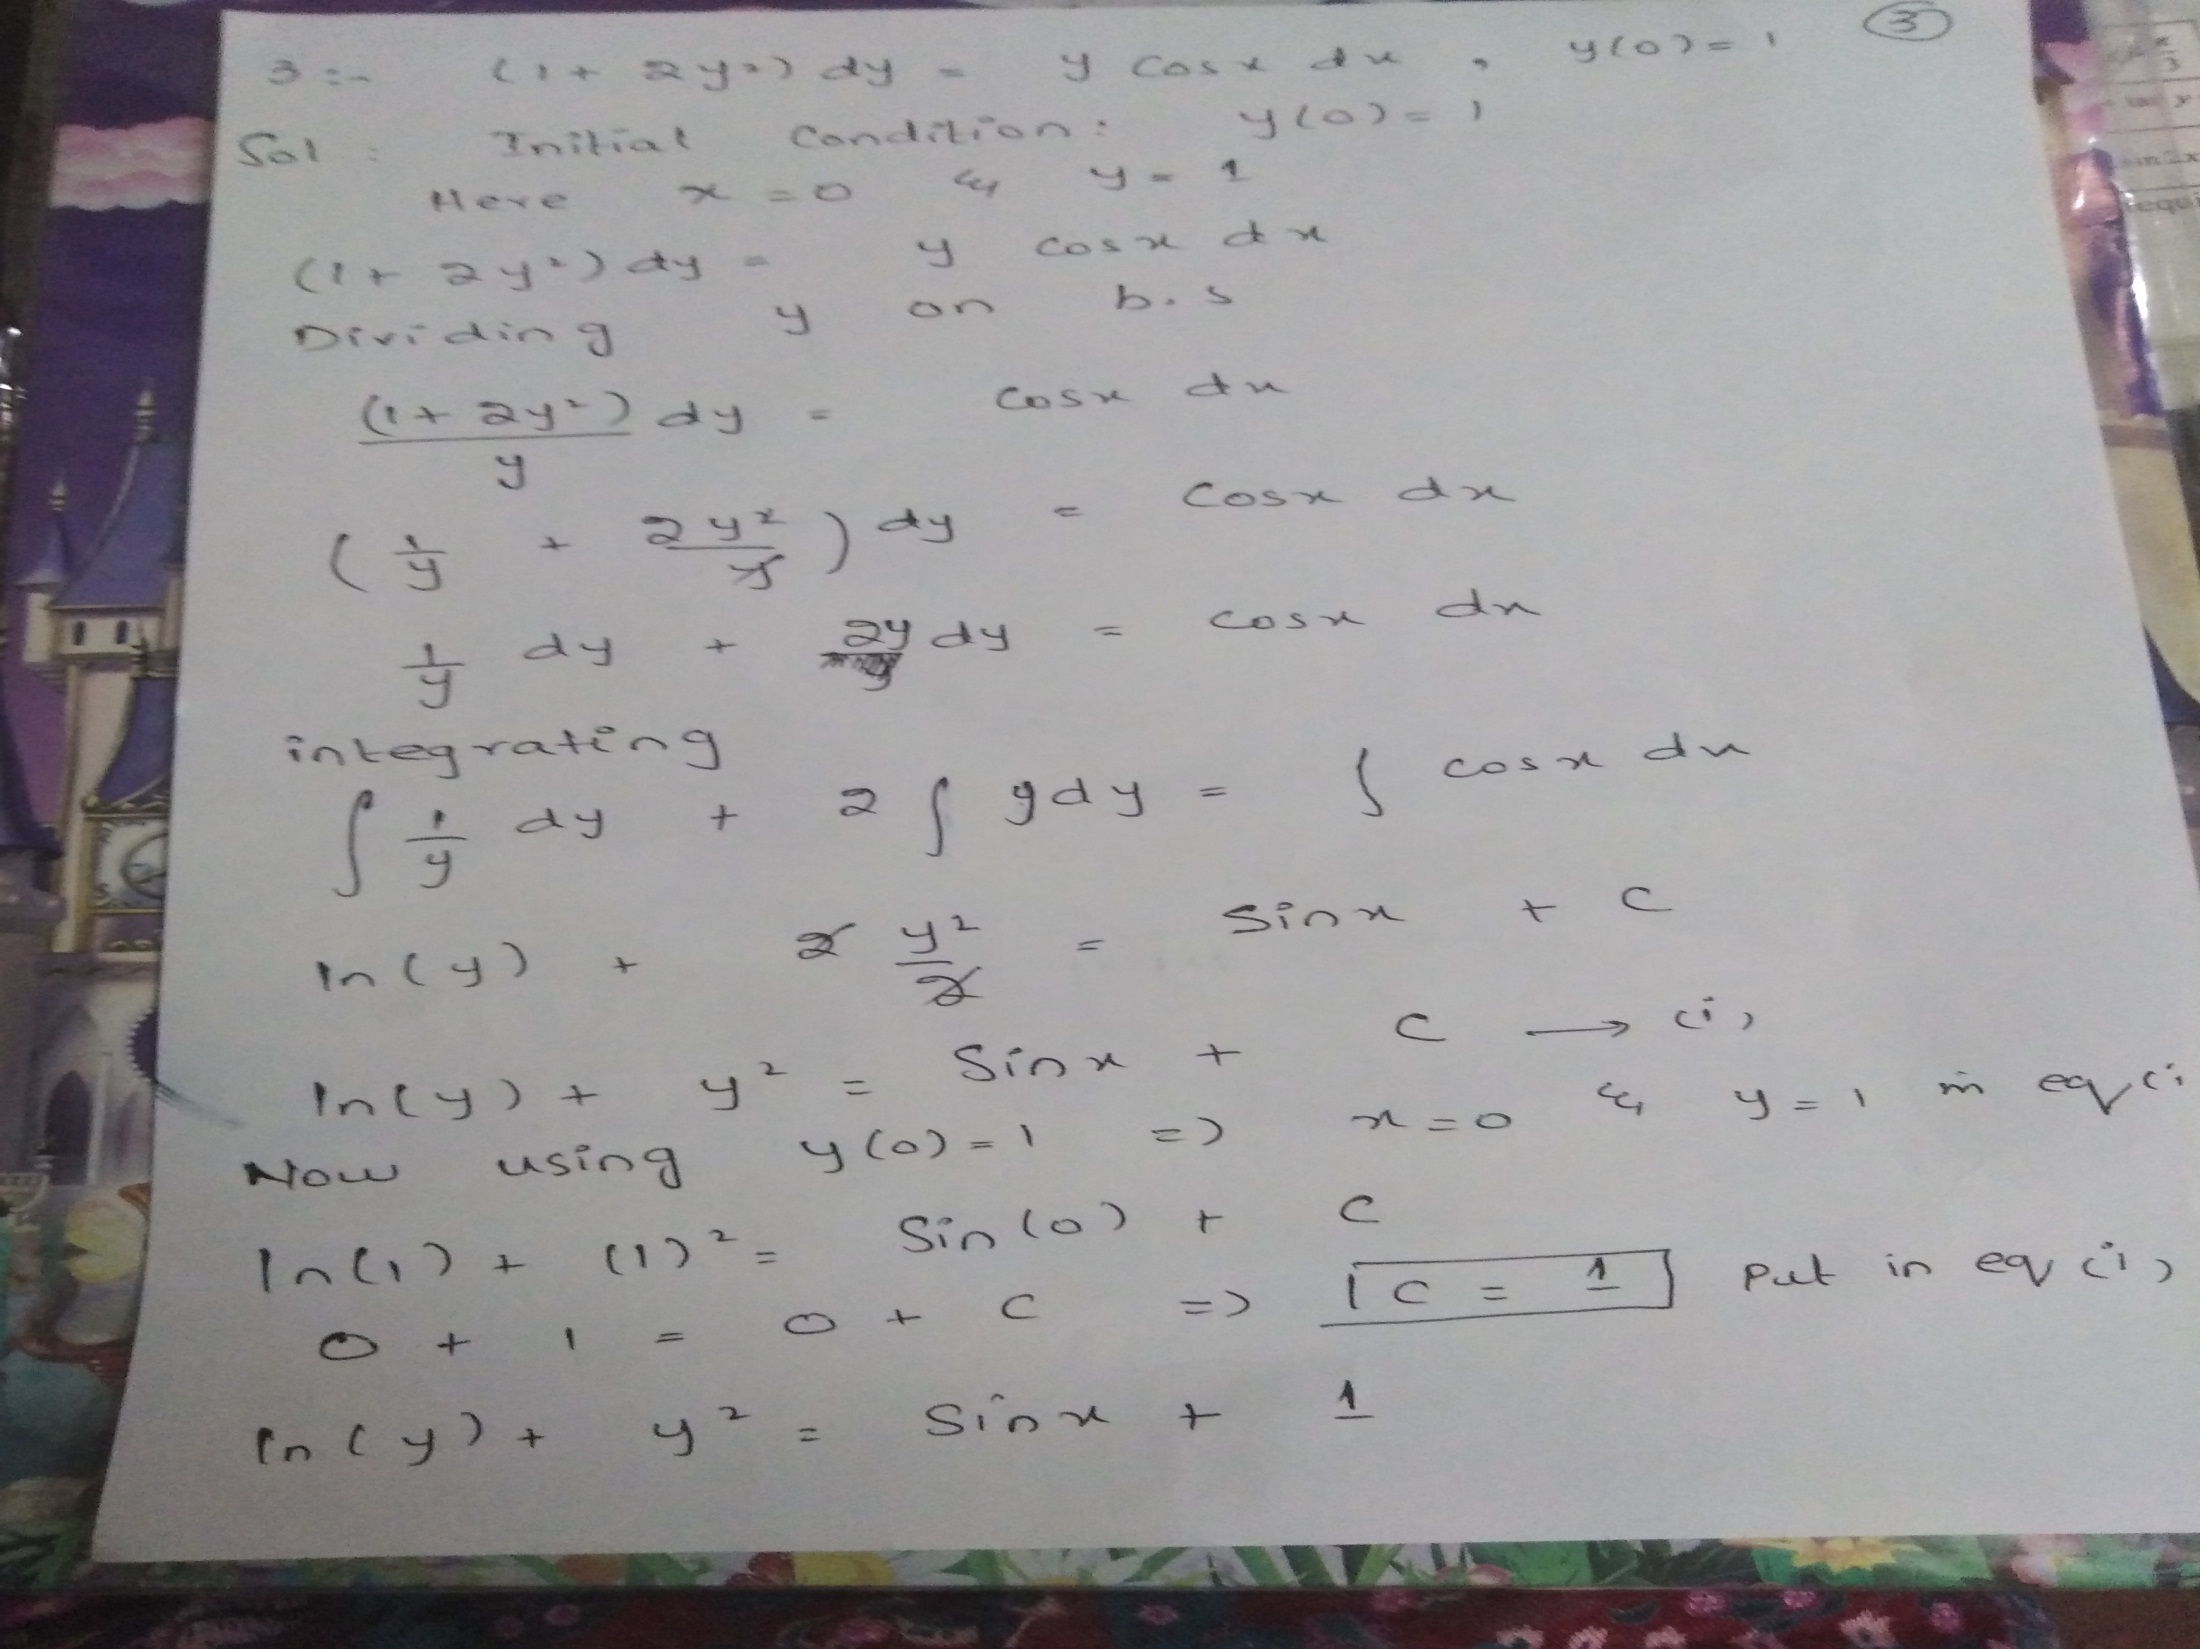 3
3 :- (1 + 2y²) dy = y cosx dx , y(0) = 1
Sol : Initial Condition: y(0) = 1
Here x = 0 & y = 1
(1 + 2y²) dy = y cosx dx
Dividing y on b.s
(1 + 2y²)/y dy = cosx dx
(1/y + 2y²/y) dy = cosx dx
1/y dy + 2y dy = cosx dx
integrating
∫ 1/y dy + 2 ∫ y dy = ∫ cosx dx
ln(y) + 2 y²/2 = Sinx + C
ln(y) + y² = Sinx + C → (i)
Now using y(0) = 1 => x = 0 & y = 1 in eq (i
ln(1) + (1)² = Sin(0) + C
0 + 1 = 0 + C => C = 1 Put in eq (i)
ln(y) + y² = Sinx + 1